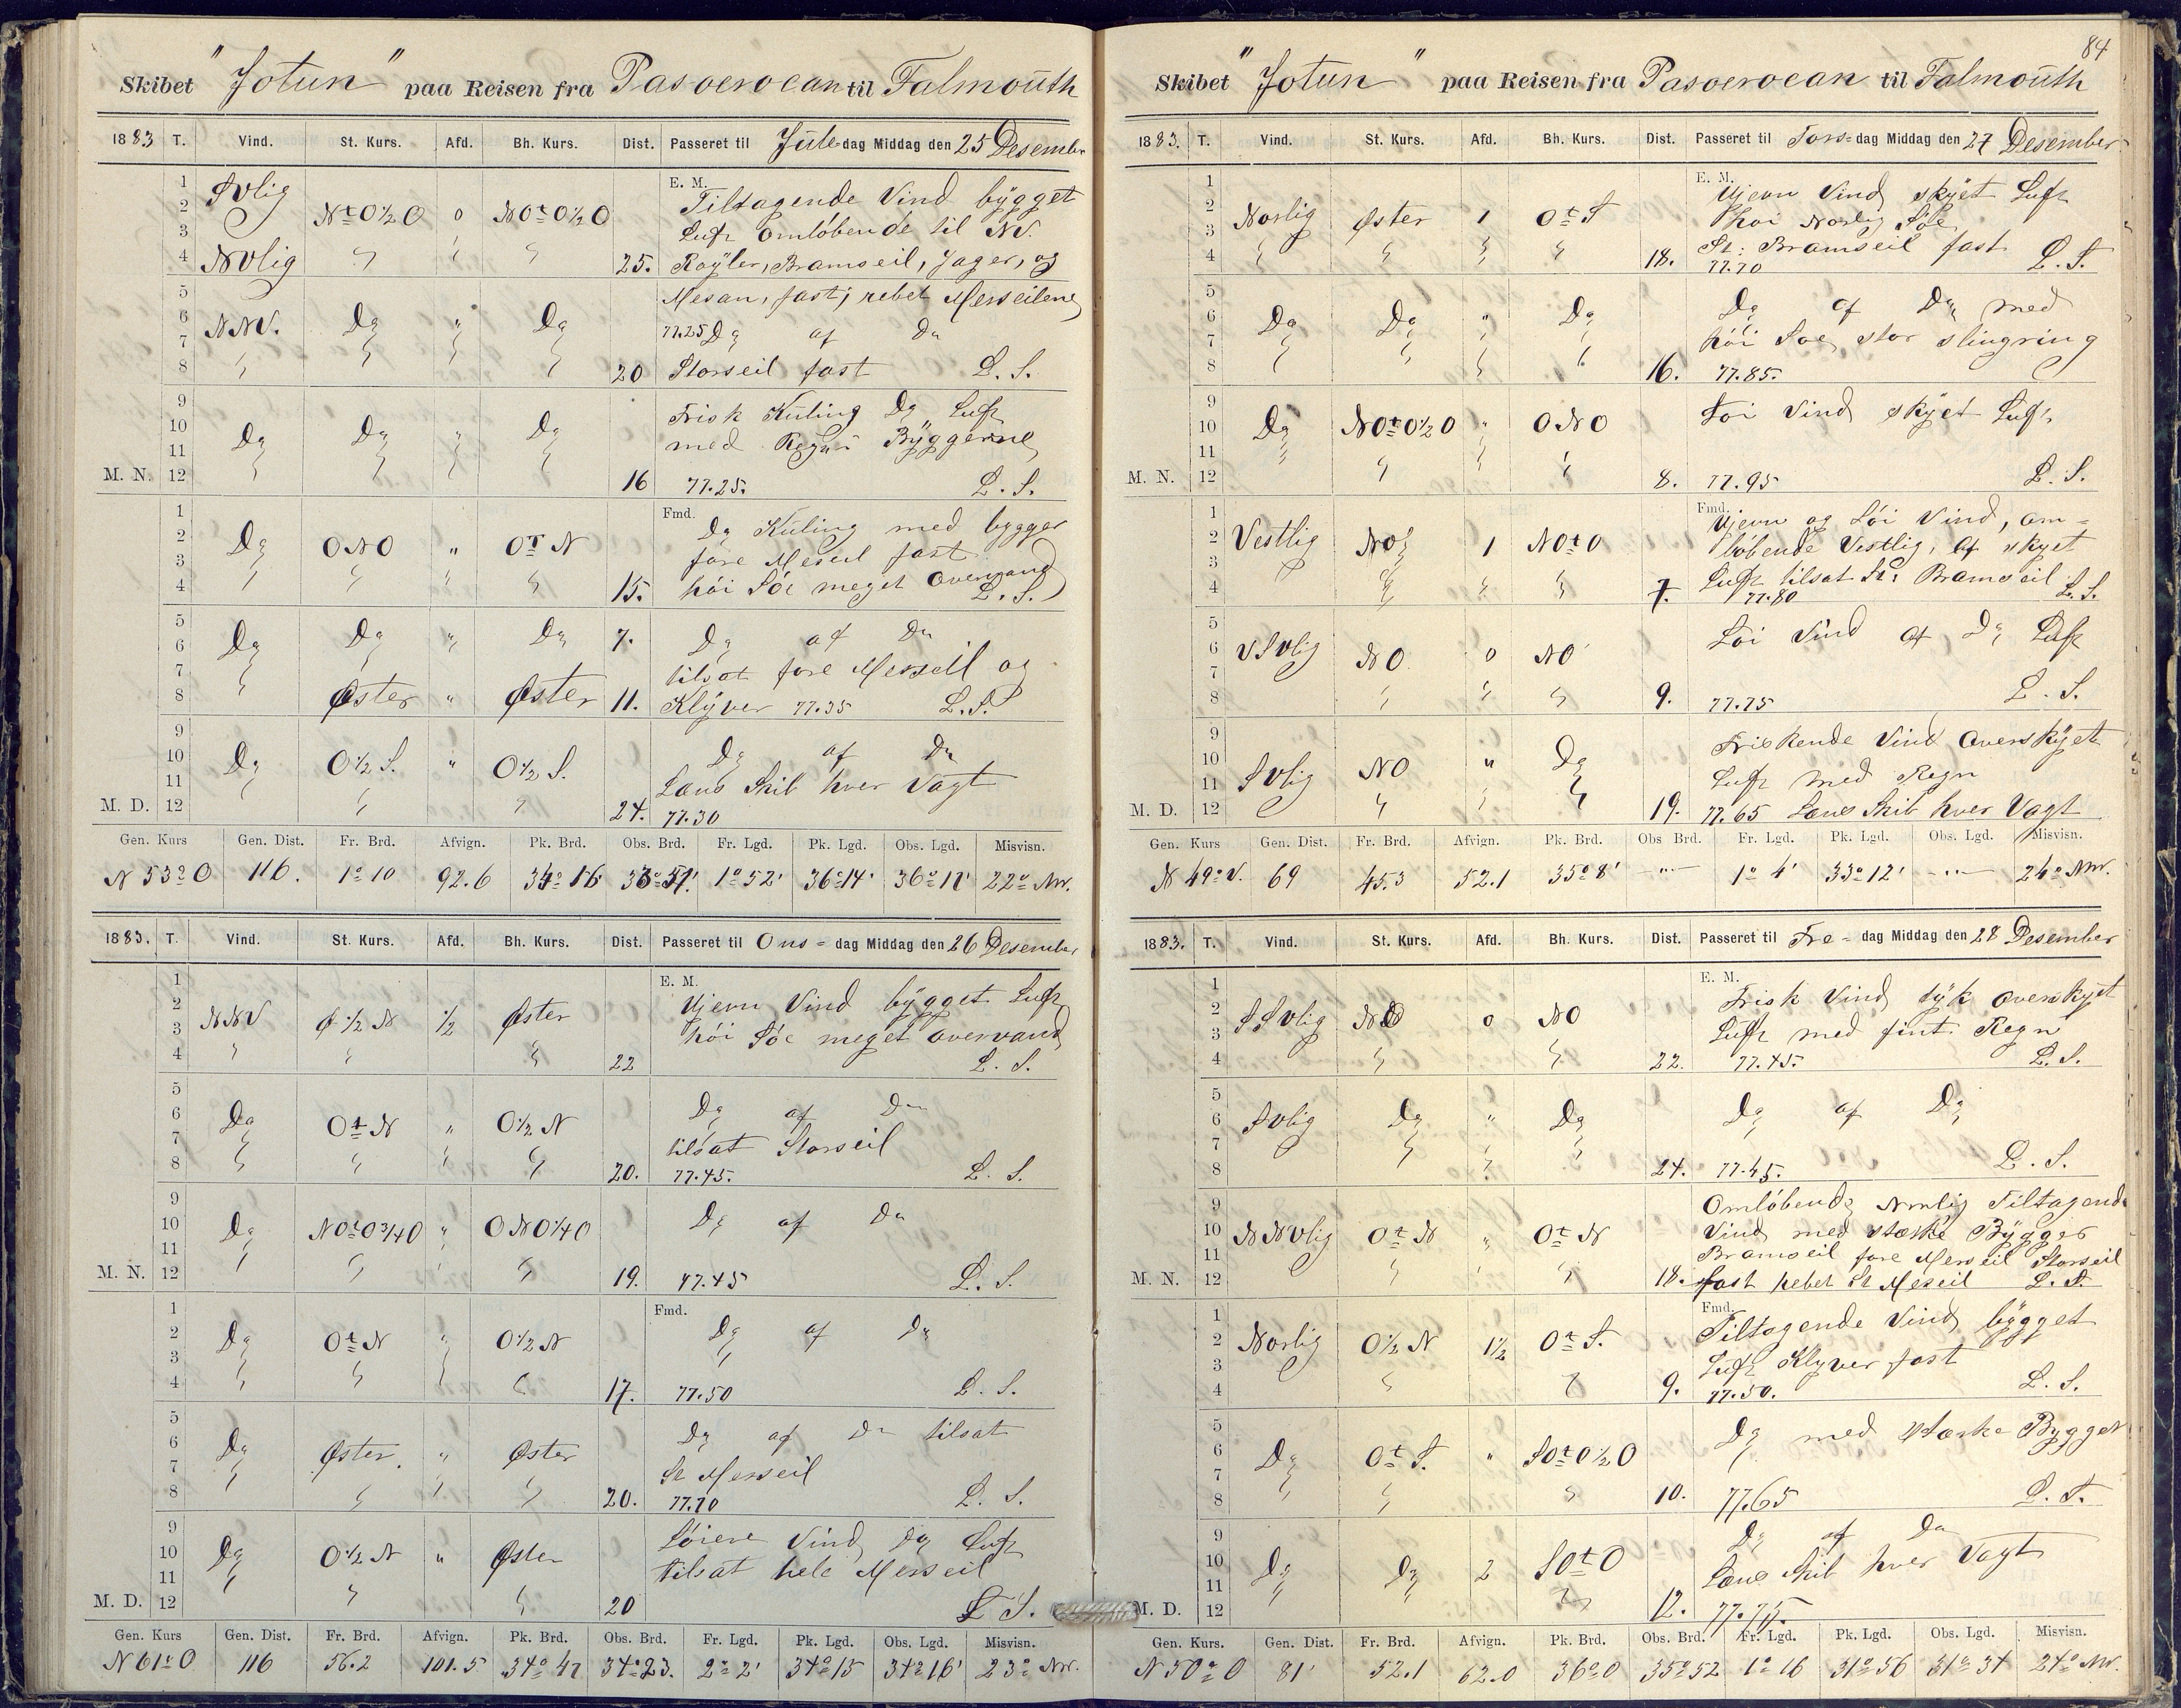 Skibet "Jotun" paa Reisen fra Pasoeroean til Falmouth
1883 T. Vind. St. Kurs. Afd. Bh. Kurs. Dist. Passeret til Jule dag Middag den 25 Desember
E. M.
1 2 3 4 SVlig Nt=O½O 0 NOt=O½O Tiltagende Vind bygget
Luft omløbende til NV.
NVlig 25. Røyler, Bramseil, Jager, og
5 6 7 8 NNV. Do " Do Mesan, fast; rebet Merseilene
77.25 Do af Do
20 Storseil fast L. S.
9 10 11 M. N. 12 Do Do " Do Frisk Kuling Do Luft
med Regn Byggerne
16 77.25. L. S.
Fmd.
1 2 3 4 Do ONO " Ot N Do Kuling med bygger
fore Merseil fast
15. høi Søe meget overvand L. S.
5 6 7 8 Do Do " Do 7. Do af Do
tilsat fore Merseil og
Øster " Øster 11. Klyver 77.35 L.S.
9 10 11 M. D. 12 Do O½S. " O½S. Do af Do
Læns Skib hver Vagt
24. 77.30
Gen. Kurs Gen. Dist. Fr. Brd. Afvign. Pk. Brd. Obs. Brd. Fr. Lgd. Pk. Lgd. Obs. Lgd. Misvisn.
N 53° O 116. 1° 10 92.6 1° 52' 36° 14' 22° NV.
1883. T. Vind. St. Kurs. Afd. Bh. Kurs. Dist. Passeret til Ons= dag Middag den 26 Desember
E. M.
1 2 3 4 NNV Ø ½ N ½ Øster Ujevn Vind bygget Luft
høi Søe meget overvand
22 L. S.
5 6 7 8 Do Ot=N " O½N Do af Do
tilsat Storseil
20. 77.45. L. S.
9 10 11 M. N. 12 Do NOt=O¾O " ONO¼O Do af Do
19. 77.45 L. S.
Fmd.
1 2 3 4 Do Ot=N " O½N Do af Do
17. 77.50 L. S.
5 6 7 8 Do Øster " Øster Do af Do tilsat
St Merseil
20. 77.70 L. S.
9 10 11 M. D. 12 Do O½N " Øster Løiere Vind Do Luft
tilsat hele Merseil
20 L S.
Gen. Kurs Gen. Dist. Fr. Brd. Afvign. Pk. Brd. Obs. Brd. Fr. Lgd. Pk. Lgd. Obs. Lgd. Misvisn.
N 61° O 116 56.2 101.5 34° 47 34° 23. 2° 2' 34° 15 34° 16' 23° NV.
84
Skibet "Jotun" paa Reisen fra Pasoeroean til Falmouth
1883. T. Vind. St. Kurs. Afd. Bh. Kurs. Dist. Passeret til Tors= dag Middag den 27 Desember
E. M.
1 2 3 4 Norlig Øster 1 Ot=S Ujevn Vind skyet Luft
høi Norlig Søe
St: Bramseil fast
18. 77.70 L. S.
5 6 7 8 Do Do " Do Do af Do med
høi Søe stor slingring
16. 77.85.
9 10 11 M. N. 12 Do NOt=O½O " ONO Løi Vind skyet Luft
8. 77.95 L. S.
Fmd.
1 2 3 4 Vestlig NO 1 NOt=O Ujevn og Løi Vind, om=
løbende Vestlig, af skyet
Luft tilsat St: Bramseil
7. 77.80 L.S.
5 6 7 8 VSVlig NO 0 NO Løi Vind af Do Luft
9. 77.75 L. S.
9 10 11 M. D. 12 SVlig NO " Do Friskende Vind overskyet
Luft med Regn
19. 77.65 Læns Skib hver Vagt
Gen. Kurs Gen. Dist. Fr. Brd. Afvign. Pk. Brd. Obs Brd. Fr. Lgd. Pk. Lgd. Obs. Lgd. Misvisn.
N 49° V. 69 45.3 52.1 35° 8' —"— 1° 4' 33° 12' —"— 24° NV.
1883. T. Vind. St. Kurs. Afd. Bh. Kurs. Dist. Passeret til Fre= dag Middag den 28 Desember
E. M.
1 2 3 4 SSVlig NO 0 NO Frisk Vind tyk overskyet
Luft med fint Regn
22. 77.45. L. S.
5 6 7 8 SVlig Do " Do Do af Do
24. 77.45. L. S.
9 10 11 M. N. 12 NNVlig Ot=N " Ot=N Omløbende Tiltagende
Vind med stærke Bygger
Bramseil fore Merseil Storseil
18. fast rebet St Merseil L. S.
Fmd.
1 2 3 4 Norlig O½N 1½ Ot=S. Tiltagende Vind bygget
Luft Klyver fast
9. 77.50. L. S.
5 6 7 8 Do Ot=S. " SOt=O½O Do med stærke Bygger
10. 77.65 L. S.
9 10 11 M. D. 12 Do Do 2 SOt=O Do af Do
Læns Skib hver Vagt
12. 77.75.
Gen. Kurs. Gen. Dist. Fr. Brd. Afvign. Pk. Brd. Obs. Brd. Fr. Lgd. Pk. Lgd. Obs. Lgd. Misvisn.
N 50° O 81' 52.1 62.0 36° 0 35° 52 1° 16 31° 56 31° 34 24° NV.